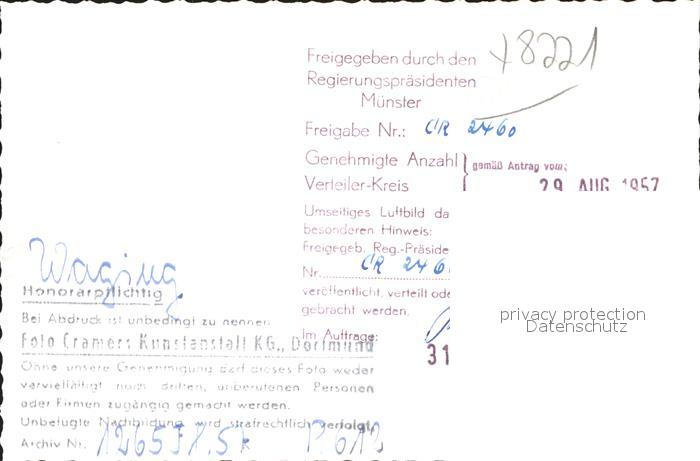 +8221
Freigegeben durch den
Regierungspräsidenten
Münster
Freigabe Nr.: CR 2460
Genehmigte Anzahl } gemäß Antrag vom:
Verteiler-Kreis 29. AUG. 1957
Umseitiges Luftbild da
besonderen Hinweis:
Freigegeb. Reg.-Präside
Nr. CR 246
veröffentlicht, verteilt ode
gebracht werden.
Im Auftrage:
31
privacy protection
Datenschutz
Waging
Honorarpflichtig
Bei Abdruck ist unbedingt zu nennen
Foto Cramers Kunstanstalt KG., Dortmund
Ohne unsere Genehmigung darf dieses Foto weder
vervielfältigt noch dritten, unberufenen Personen
oder Firmen zugängig gemacht werden.
Unbefugte Nachbildung wird strafrechtlich verfolgt
Archiv Nr.